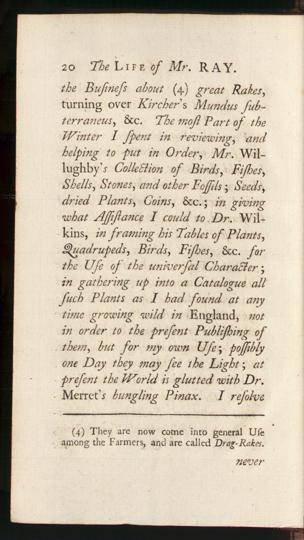 20 The LIFE of Mr. RAY.
the Buſineſs about (4) great Rakes,
turning over Kircher's Mundus ſub-
terraneus, &c. The moſt Part of the
Winter I ſpent in reviewing, and
helping to put in Order, Mr. Wil-
lughby's Collection of Birds, Fiſhes,
Shells, Stones, and other Foſſils; Seeds,
dried Plants, Coins, &c.; in giving
what Aſſiſtance I could to Dr. Wil-
kins, in framing his Tables of Plants,
Quadrupeds, Birds, Fiſhes, &c. for
the Uſe of the univerſal Character;
in gathering up into a Catalogue all
ſuch Plants as I had found at any
time growing wild in England, not
in order to the preſent Publiſhing of
them, but for my own Uſe; poſſibly
one Day they may ſee the Light; at
preſent the World is glutted with Dr.
Merret's bungling Pinax. I reſolve
(4) They are now come into general Uſe
among the Farmers, and are called Drag-Rakes.
never